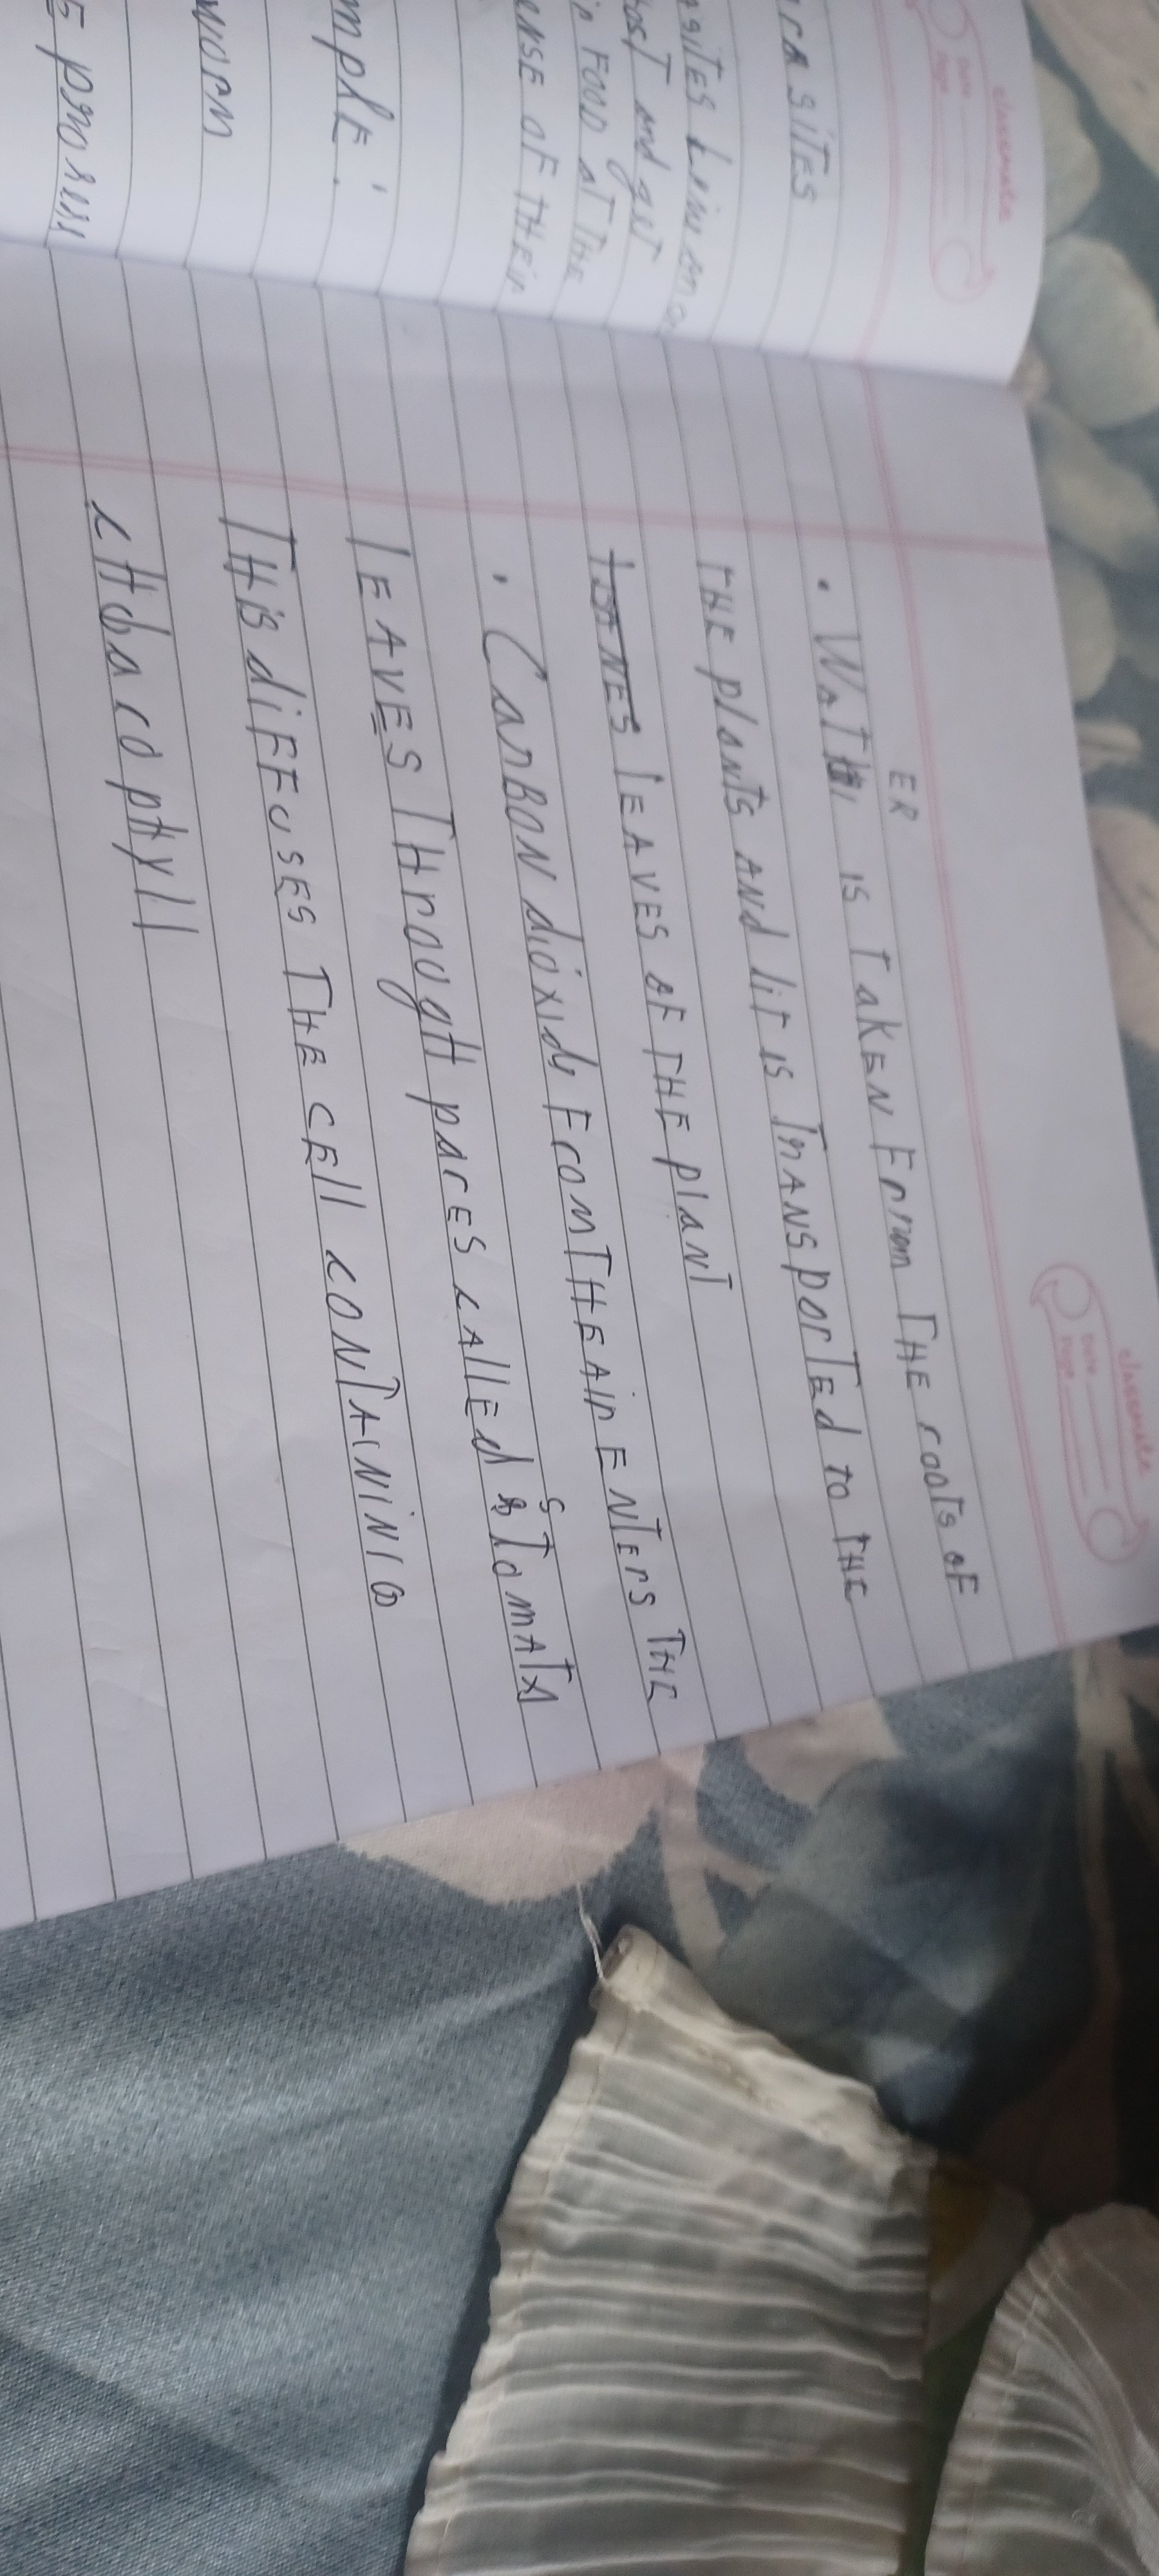 classmate
Date
Page
RASITES
SITES Live on a
HOST and get
in FOOD AT THE
ENSE OF THEIR
MPLE:
WORM
classmate
Date
Page
ER
• WATER IS TAKEN From THE rooTs OF
THE plANTS AND IT IS TRANSporTEd to THE
LEAVES OF THE PlANT
• CarBON dioxide From THE AIR ENTErS THE
LEAVES THrougH porES CALLED STOMATA
THis diFFUSES THE CEll CONTAINING
CHloroPHYll